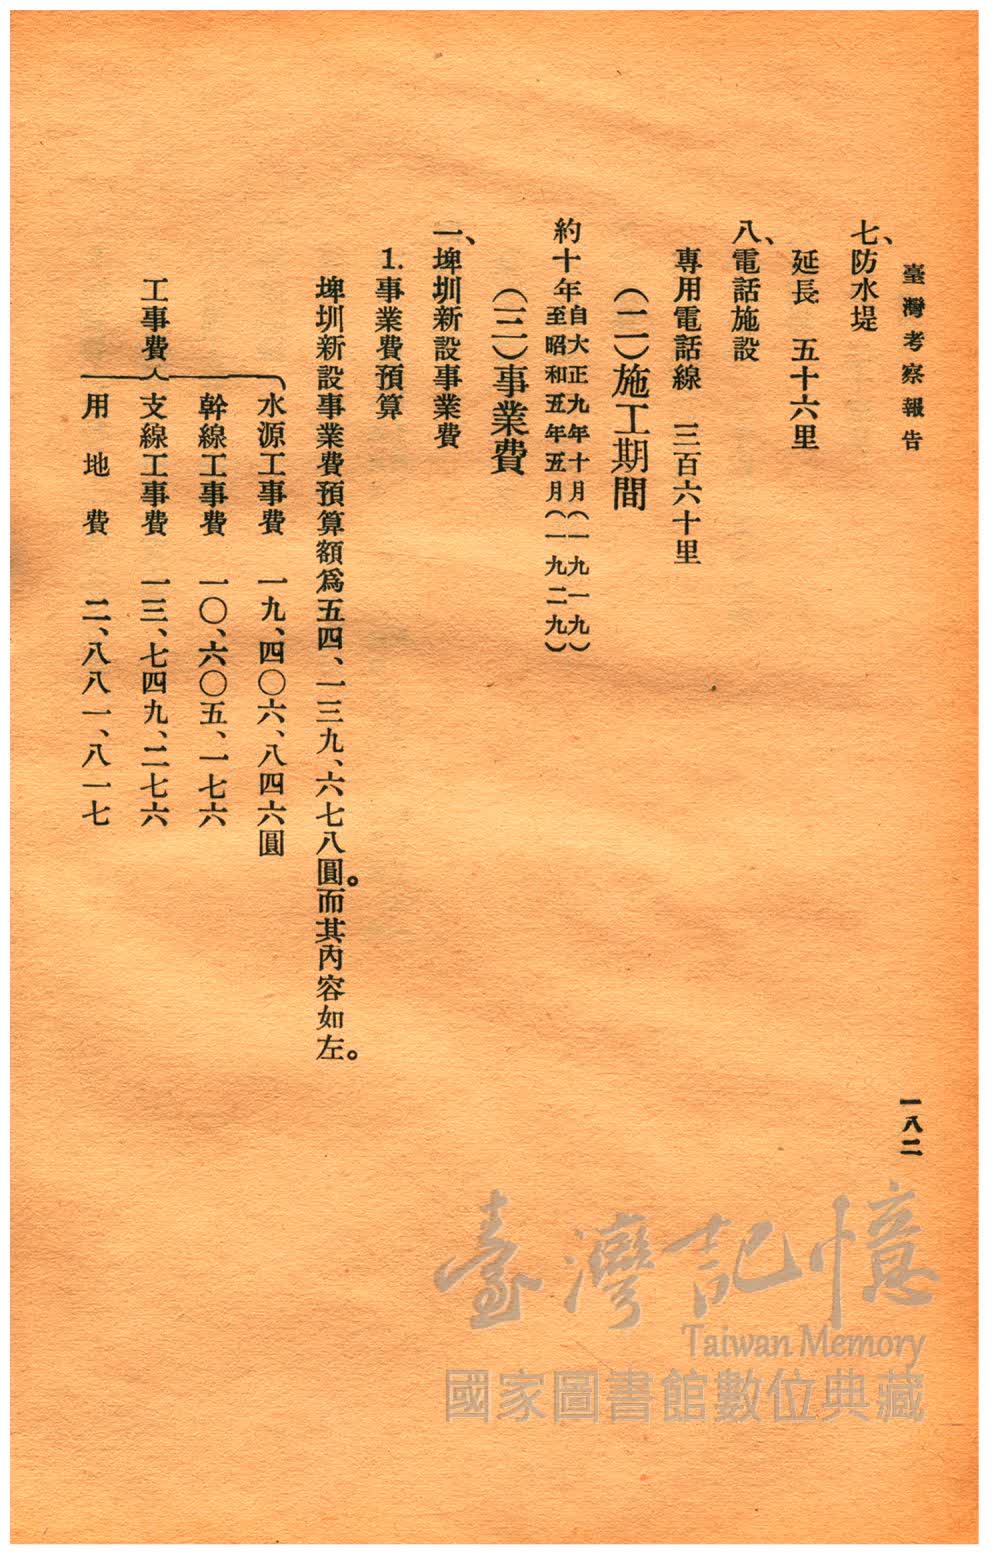 臺灣考察報告
一八二
七、防水堤
延長　五十六里
八、電話施設
專用電話線　三百六十里
（二）施工期間
約十年自大正九年十月（一九一九）
至昭和五年五月（一九二九）
（三）事業費
一、埤圳新設事業費
1.事業費預算
埤圳新設事業費預算額爲五四、一三九、六七八圓。而其內容如左。
水源工事費　一九、四〇六、八四六圓
幹線工事費　一〇、六〇五、一七六
工事費
支線工事費　一三、七四九、二七六
用地費　二、八八一、八一七
臺灣記憶
Taiwan Memory
國家圖書館數位典藏